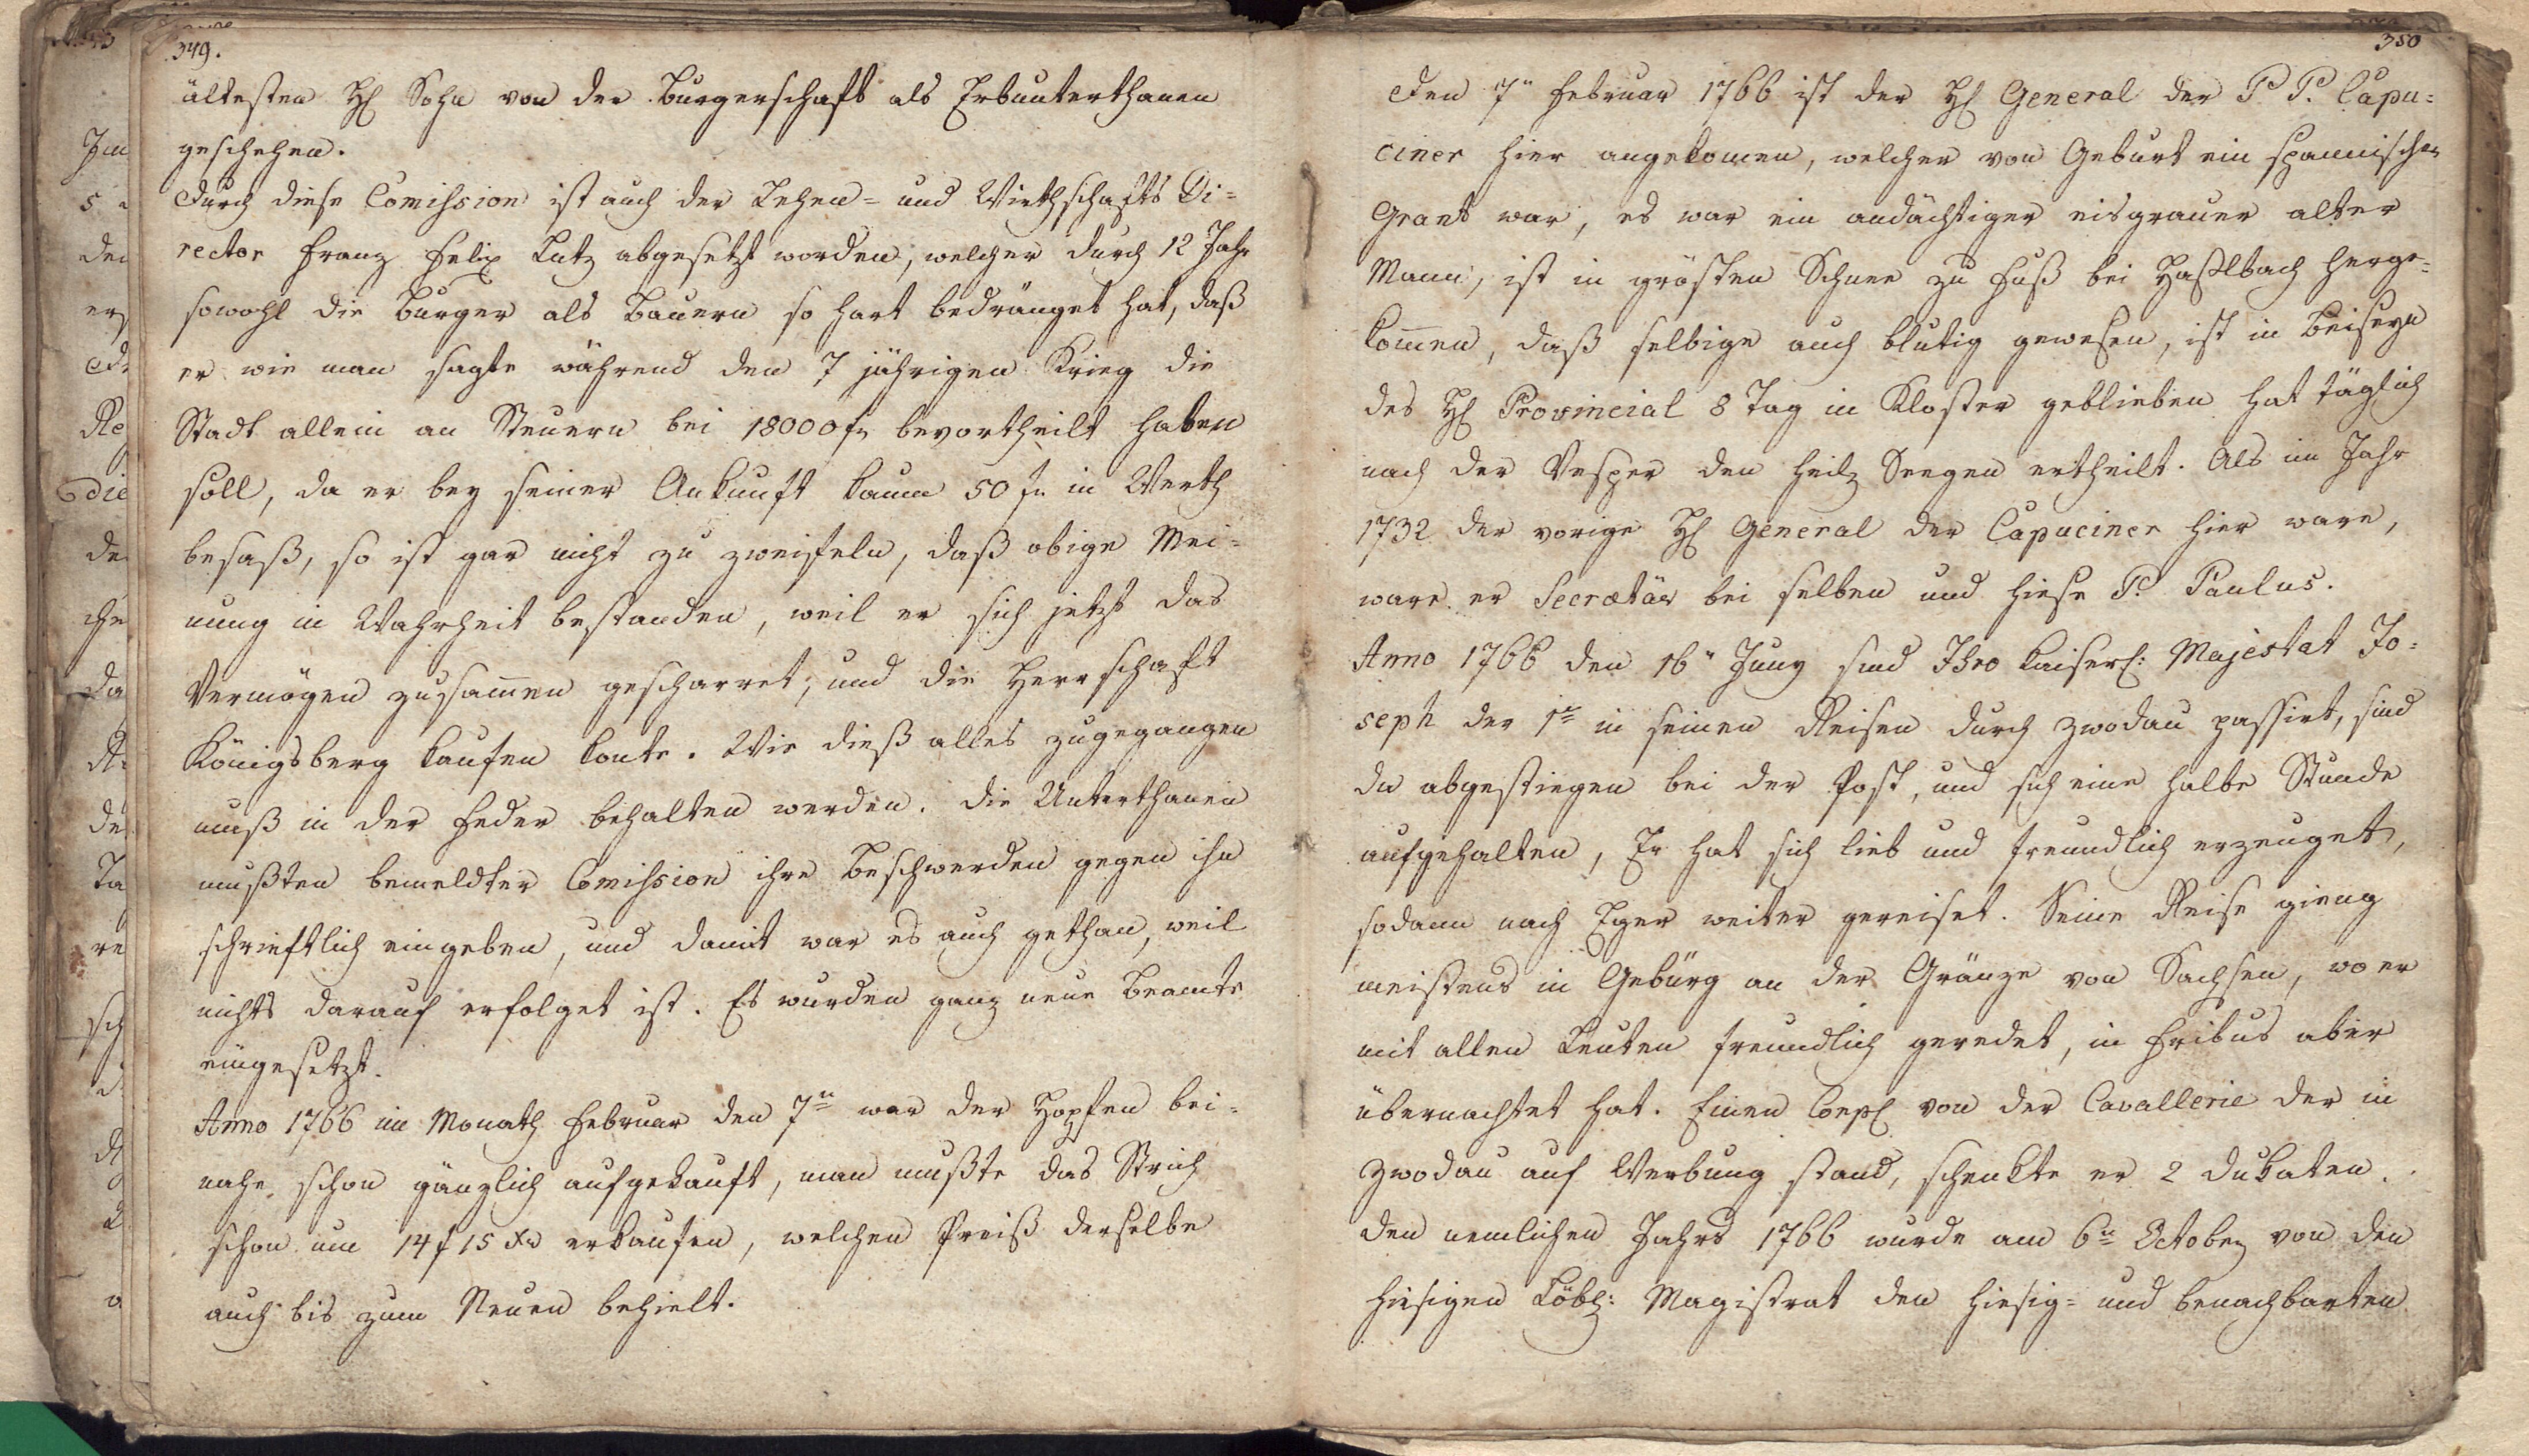 349.
ältesten H/ Sohn von der Burgerschaft als Erbunterthanen
geschehen.
Durch diese Comission ist auch der Lehen= und Wirthschafts Di=
rector Franz Felix Lutz abgesetzt worden, welcher durch 12 Jahr
sowohl die Burger als Bauern so hart bedränget hat, daß
er wie man sagte während den 7 jährigen Krieg die
Stadt allein an Steuern bei 18000 fr bevortheilt haben
soll, da er bey seiner Ankunft kaum 50 fr in Werth
besaß, so ist gar nicht zu zweifeln, daß obige Mei=
nung in Wahrheit bestanden, weil er sich jetzt das
Vermögen zusam̅en gescharret, und die Herrschaft
Königsberg kaufen konte. Wie dieß alles zugegangen
muß in der Feder behalten werden. Die Unterthanen
mußten bemeldter Comission ihre Beschwerden gegen ihn
schrieftlich eingeben, und damit war es auch gethan, weil
nichts darauf erfolget ist. Es wurden ganz neue Beamte
eingesetzt.
Anno 1766 im Monath Februar den 7n war der Hopfen bei=
nahe schon gänzlich aufgekauft, man mußte das Strich
schon um 14 f 15 Xr erkaufen, welchen Preiß derselbe
auch bis zum Neuen behielt.
350
Den 7n Februar 1766 ist der H/ General der P. P. Capu=
ciner hier angekomen, welcher von Geburt ein spannischer
Grant war, es war ein andächtiger eisgrauer alter
Mann, ist in grösten Schnee zu Fuß bei Haßlbach herge=
kom̅en, daß selbige auch blutig gewesen, ist in Beiseyn
des H/ Provincial 8 Tag in Kloster geblieben hat täglich
nach der Vesper den heilg Seegen ertheilt. Als im Jahr
1732 der vorige H/ General der Capuciner hier ware,
ware er Secretär bei selben und hiese P. Paulus.
Anno 1766 den 16n Juny sind Ihro kaiserl: Majestat Jo=
seph der 1te in seinen Reisen durch Zwodau passirt, sind
da abgestiegen bei der Post, und sich eine halbe Stunde
aufgehalten, Er hat sich lieb und freundlich erzeuget,
sodann nach Eger weiter gereiset. Seine Reise gieng
meistens in Gebürg an der Gränze von Sachsen, wo er
mit allen Leuten freundlich geredet, in Fribus aber
übernachtet hat. Einen Corpl von der Cavallerie der in
Zwodau auf Werbung stand, schenkte er 2 Dukaten.
Den nemlichen Jahrs 1766 wurde am 6n October von den
hiesigen Löbl: Magistrat den hiesig= und benachbarten